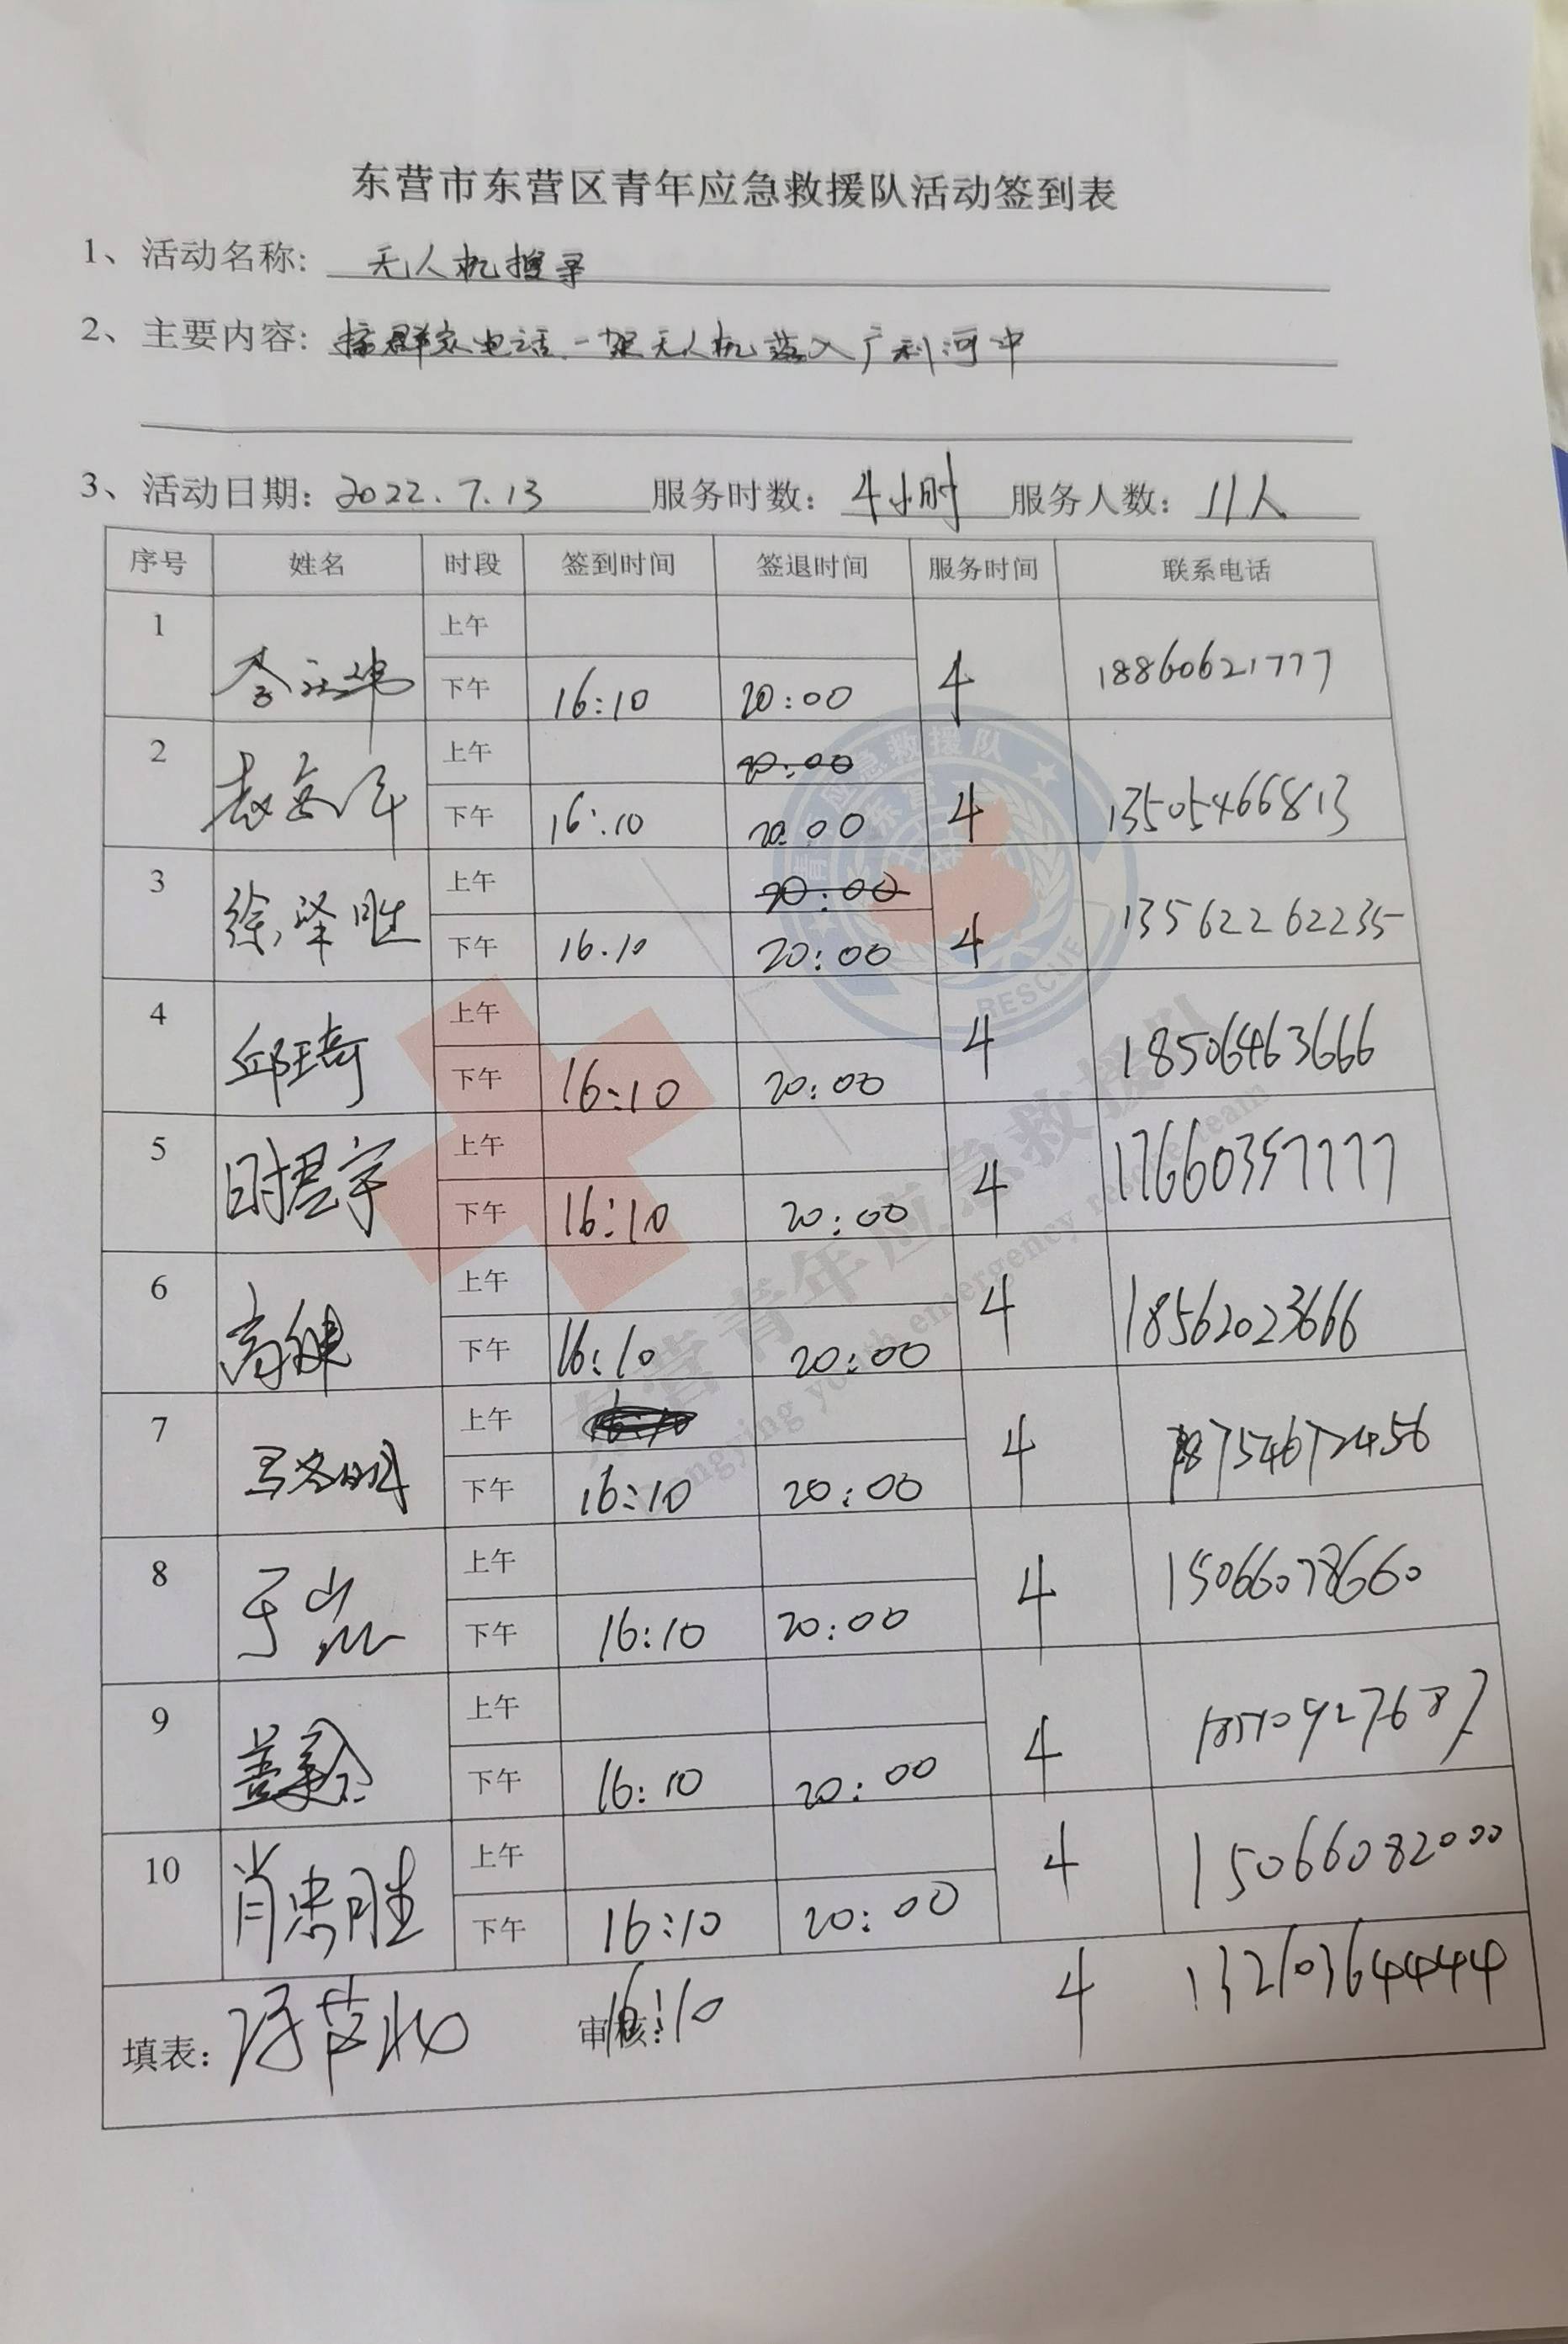 东营市东营区青年应急救援队活动签到表
1、活动名称: 无人机搜寻
2、主要内容: 接群众电话一架无人机落入广利河中
3、活动日期: 2022.7.13 服务时数: 4小时 服务人数: 11人
序号 姓名 时段 签到时间 签退时间 服务时间 联系电话
1 上午
下午 16:10 20:00 4 18860621777
2 上午 20:00
下午 16:10 20:00 4 13505466813
3 徐泽胜 上午 20:00
下午 16:10 20:00 4 13562262235
4 邱琦 上午
下午 16:10 20:00 4 18506463666
5 时君宇 上午
下午 16:10 20:00 4 17660357777
6 高健 上午
下午 16:10 20:00 4 18562023666
7 上午 16:10
下午 16:10 20:00 4 18754672456
8 于淼 上午
下午 16:10 20:00 4 15066078660
9 上午
下午 16:10 20:00 4
10 肖忠胜 上午
下午 16:10 20:00 4 15066082000
填表: 审核: 16:10 4 13210364444
青年应急救援队
RESCUE
东营青年应急救援队
Dongying youth emergency rescue team